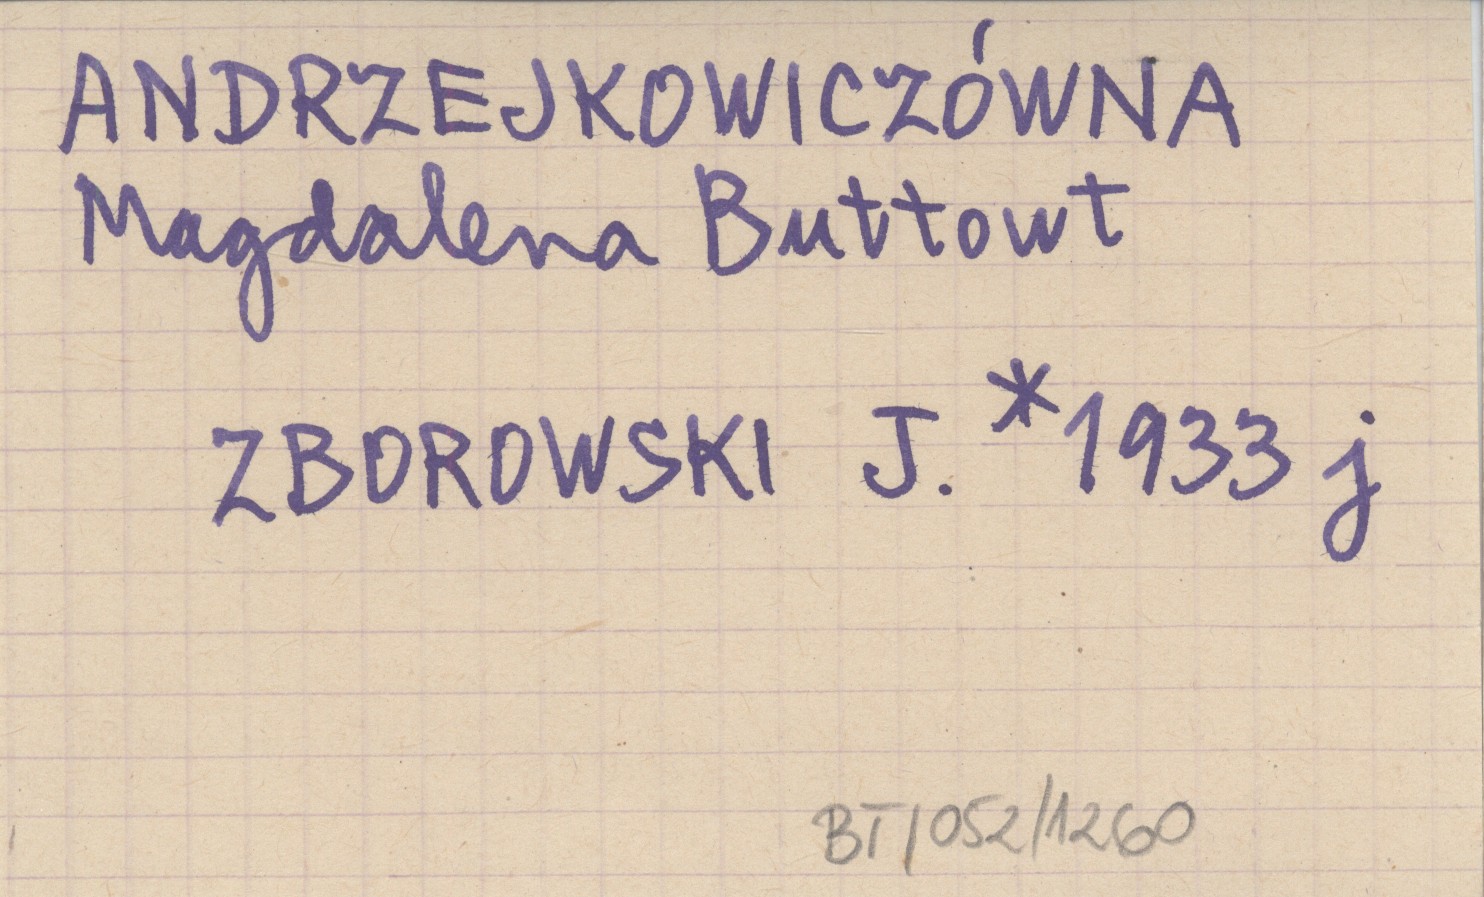 ANDRZEJKOWICZÓWNA
Magdalena Buttowt
ZBOROWSKI J. *1933 j
BT/052/1260